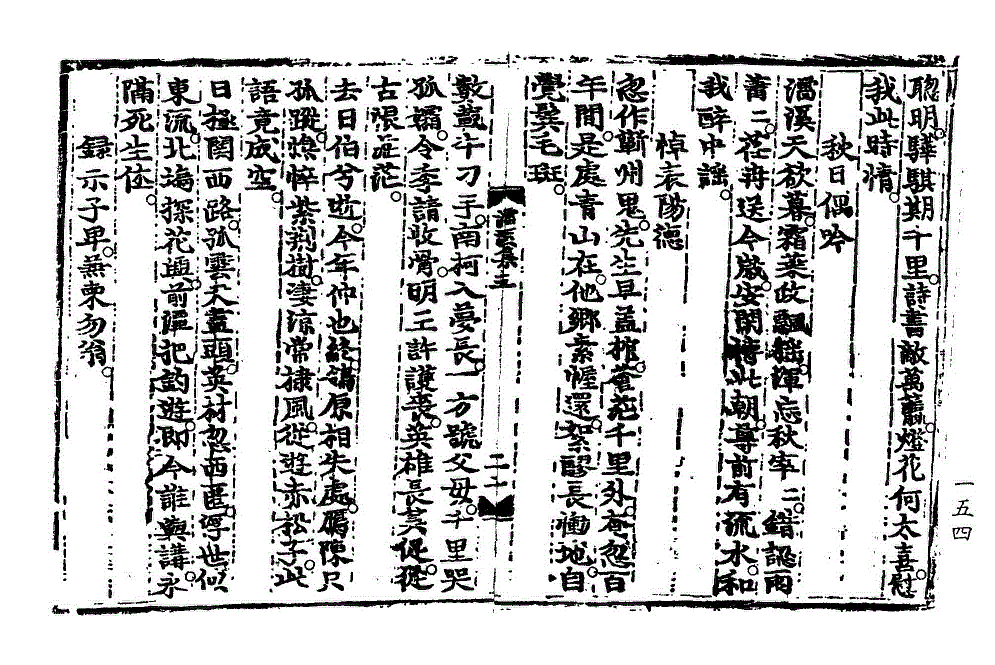 聰明。驊騏期千里。詩書敵萬籯。燈花何太喜。慰
我此時情。
秋日偶吟
溪天欲暮。霜葉政飄颻。渾忘秋宰二。錯認雨
蕭二。荏苒送今歲。安閑此朝。尊前有流水。和
我醉中謡。
悼袁陽德
忽作蘄州鬼。先生早盖棺。蒼茫千里外。奄忽百
年間。是處靑山在。他鄉素幄還。絮醪長慟地。自
覺鬢毛斑。
集三
二十
牛刀手。南柯入夢長。一方號父母。千里哭
孤孀。令季請收骨。明王許護喪。英雄長莫從。從
古恨茫茫。
去日伯兮逝。今年仲也終。鴒原相失處。鴈陣只
孤蹤。憔悴紫荆樹。凄涼常棣風。從遊赤松子。此
語竟成空。
日極関西路。孤雲天盡頭。英材忽西匿。浮世似
東流。北塢探花興。前磯把釣遊。即今誰與講。永
隔死生
錄示子早兼柬勿翁。
一五四